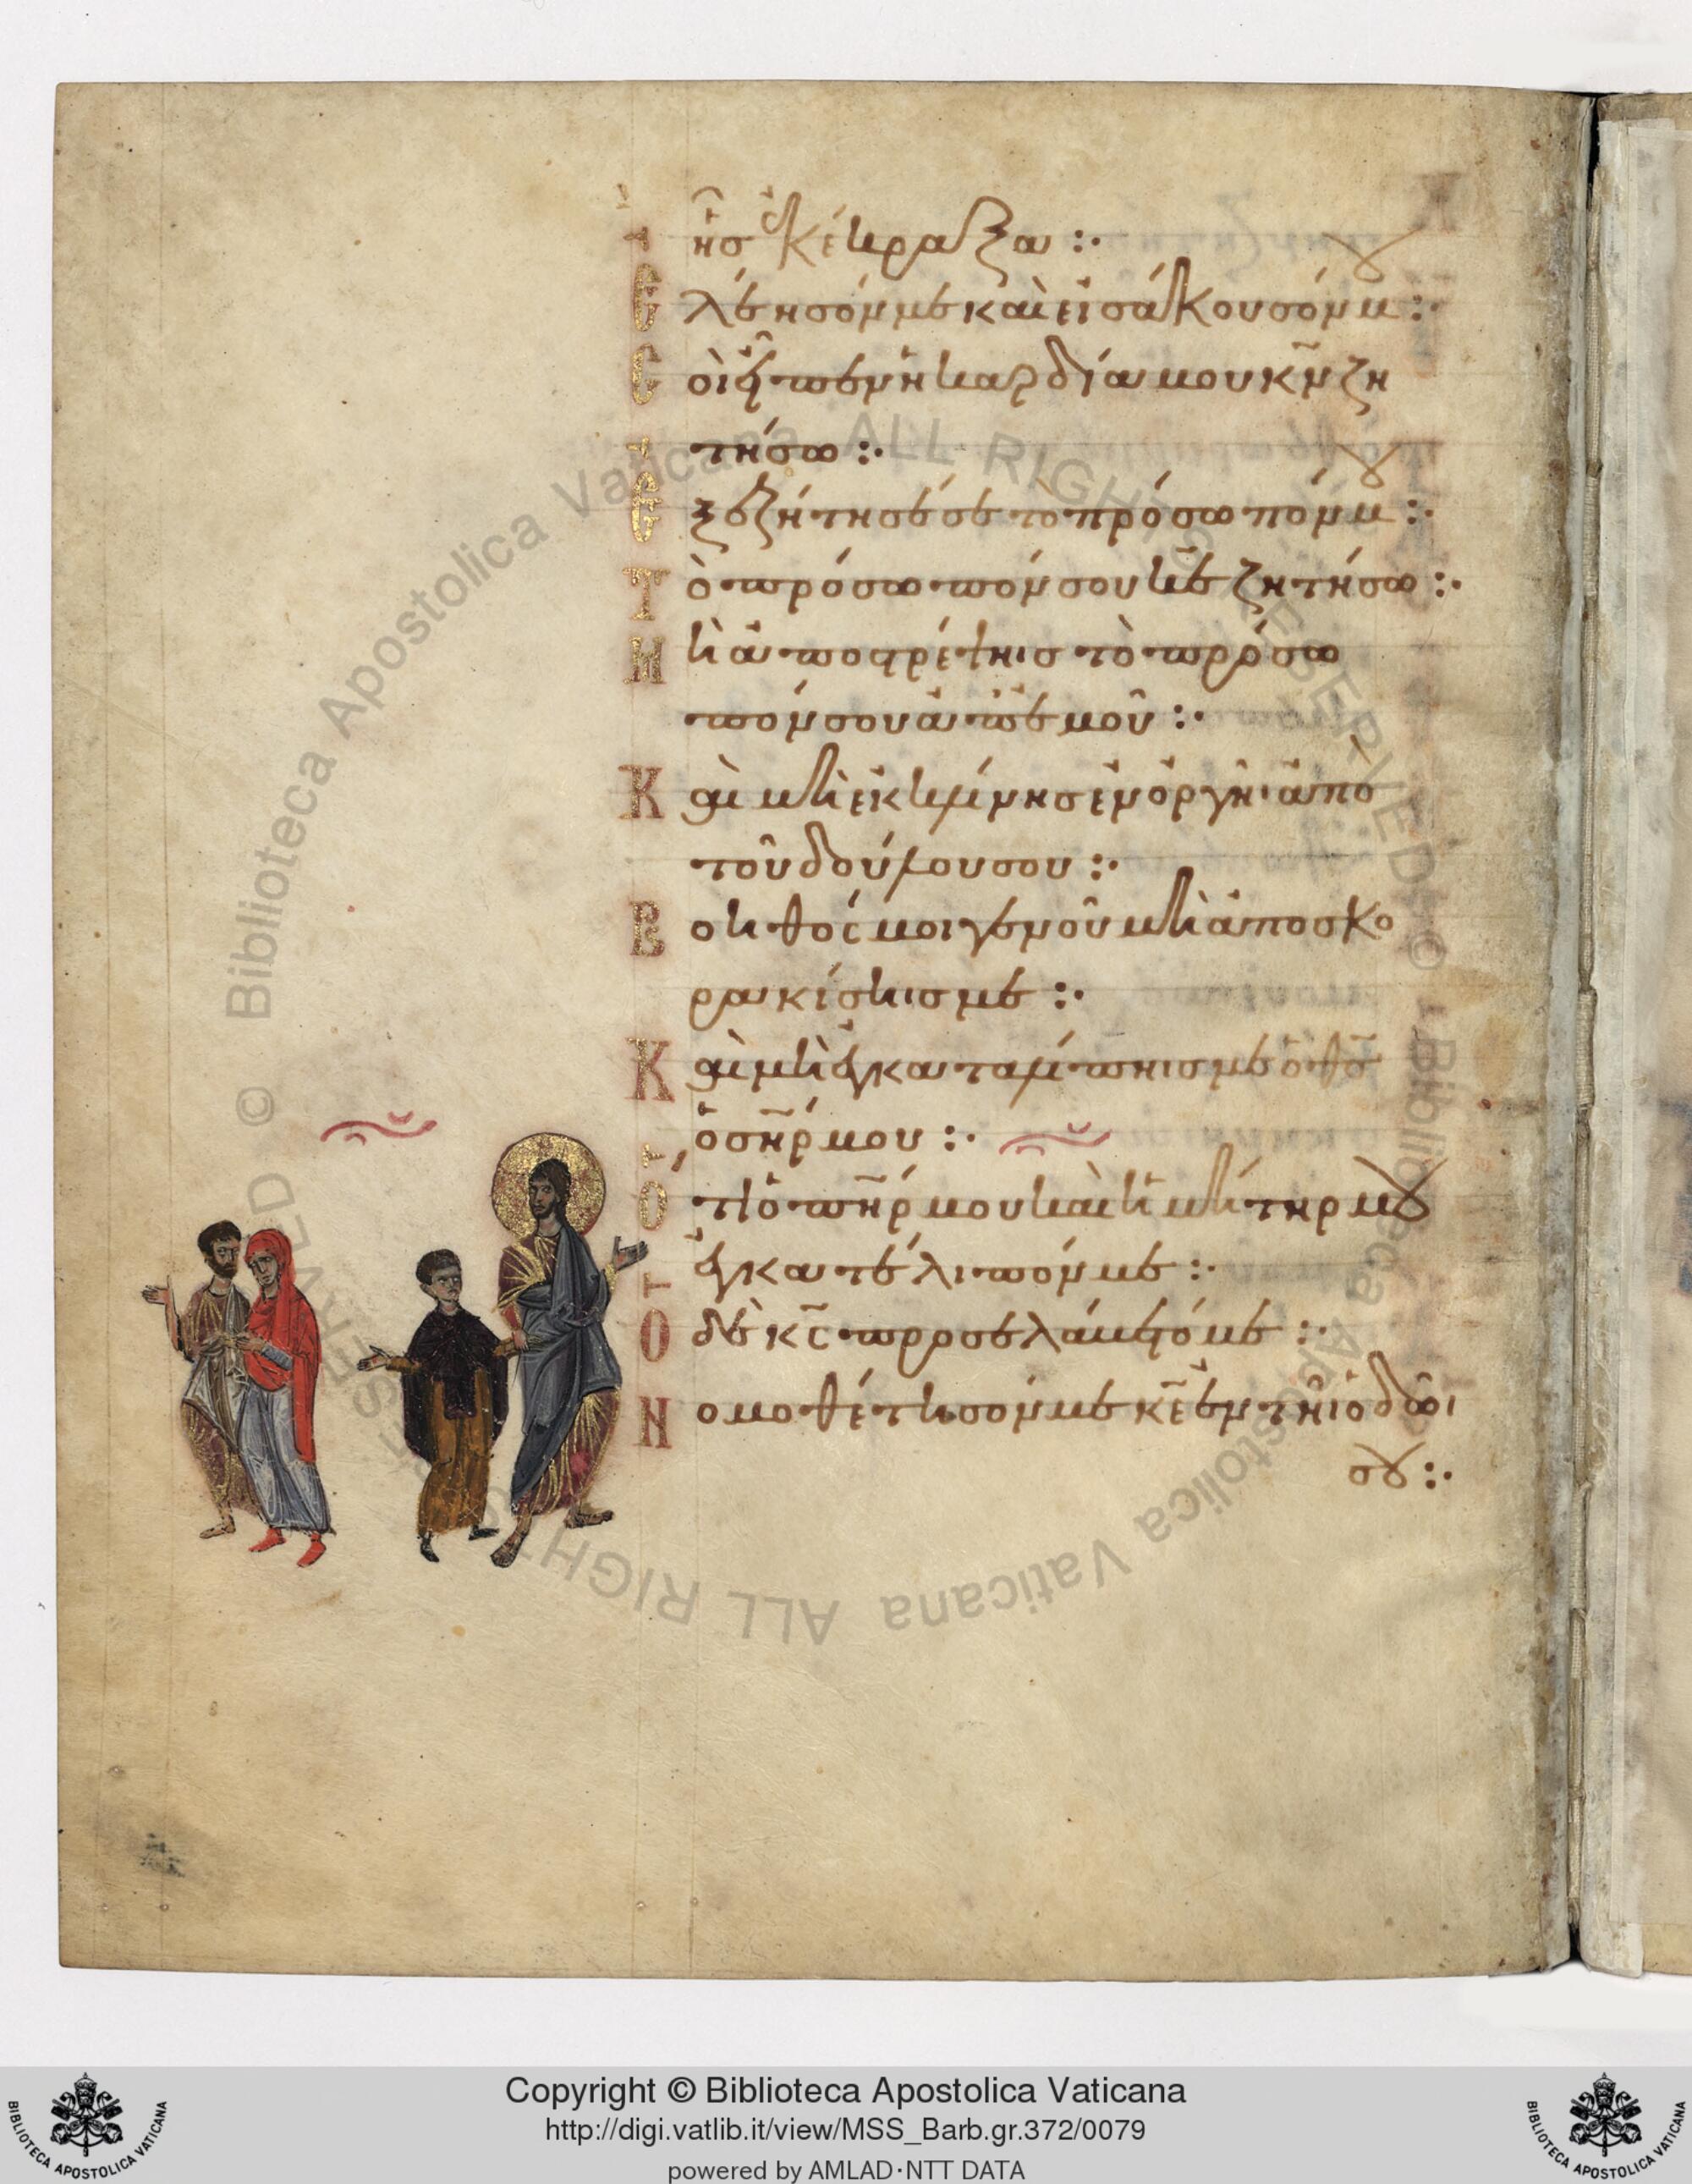 ἧς ἐκέκραξα :·
Ἐλέησόν με καὶ εἰσάκουσόν μου :·
Σοὶ εἶπεν ἡ καρδία μου κ͞ν ζη
τήσω :·
Ἐξεζήτησέ σε τὸ πρόσωπόν μου :·
Τὸ πρόσωπόν σου κ͞ε ζητήσω :·
Μὴ ἀποστρέψηις τὸ πρόσω
πόν σου ἀπ' ἐμοῦ :·
Καὶ μὴ ἐκκλίνηις ἐν ὀργῆι ἀπὸ
τοῦ δούλου σου :·
Βοηθός μοι γενοῦ μὴ ἀποσκο
ρακίσηις με :·
Καὶ μὴ ἐγκαταλίπηις με ὁ θ͞ς
ὁ σ͞ηρ μου :·
Ὅτι ὁ π͞ηρ μου καὶ ἡ μήτηρ μου
ἐγκατέλιπόν με :·
Ὁ δὲ κ͞ς προσελάβετό με :·
Νομοθέτησόν με κ͞ε ἐν τῆι ὁδῶι
σου :·
Copyright © Biblioteca Apostolica Vaticana
http://digi.vatlib.it/view/MSS_Barb.gr.372/0079
powered by AMLAD·NTT DATA
BIBLIOTECA APOSTOLICA VATICANA
BIBLIOTECA APOSTOLICA VATICANA
© Biblioteca Apostolica Vaticana ALL RIGHTS RESERVED © Biblioteca Apostolica Vaticana ALL RIGHTS RESERVED